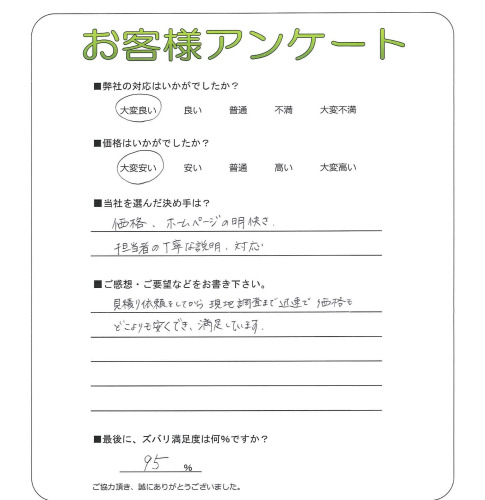 お客様アンケート
■弊社の対応はいかがでしたか?
大変良い 良い 普通 不満 大変不満
■価格はいかがでしたか?
大変安い 安い 普通 高い 大変高い
■当社を選んだ決め手は?
価格、ホームページの明快さ、
担当者の丁寧な説明、対応
■ご感想・ご要望などをお書き下さい。
見積り依頼をしてから現地調査まで迅速で価格も
どこよりも安くでき、満足しています。
■最後に、ズバリ満足度は何%ですか?
95 %
ご協力頂き、誠にありがとうございました。